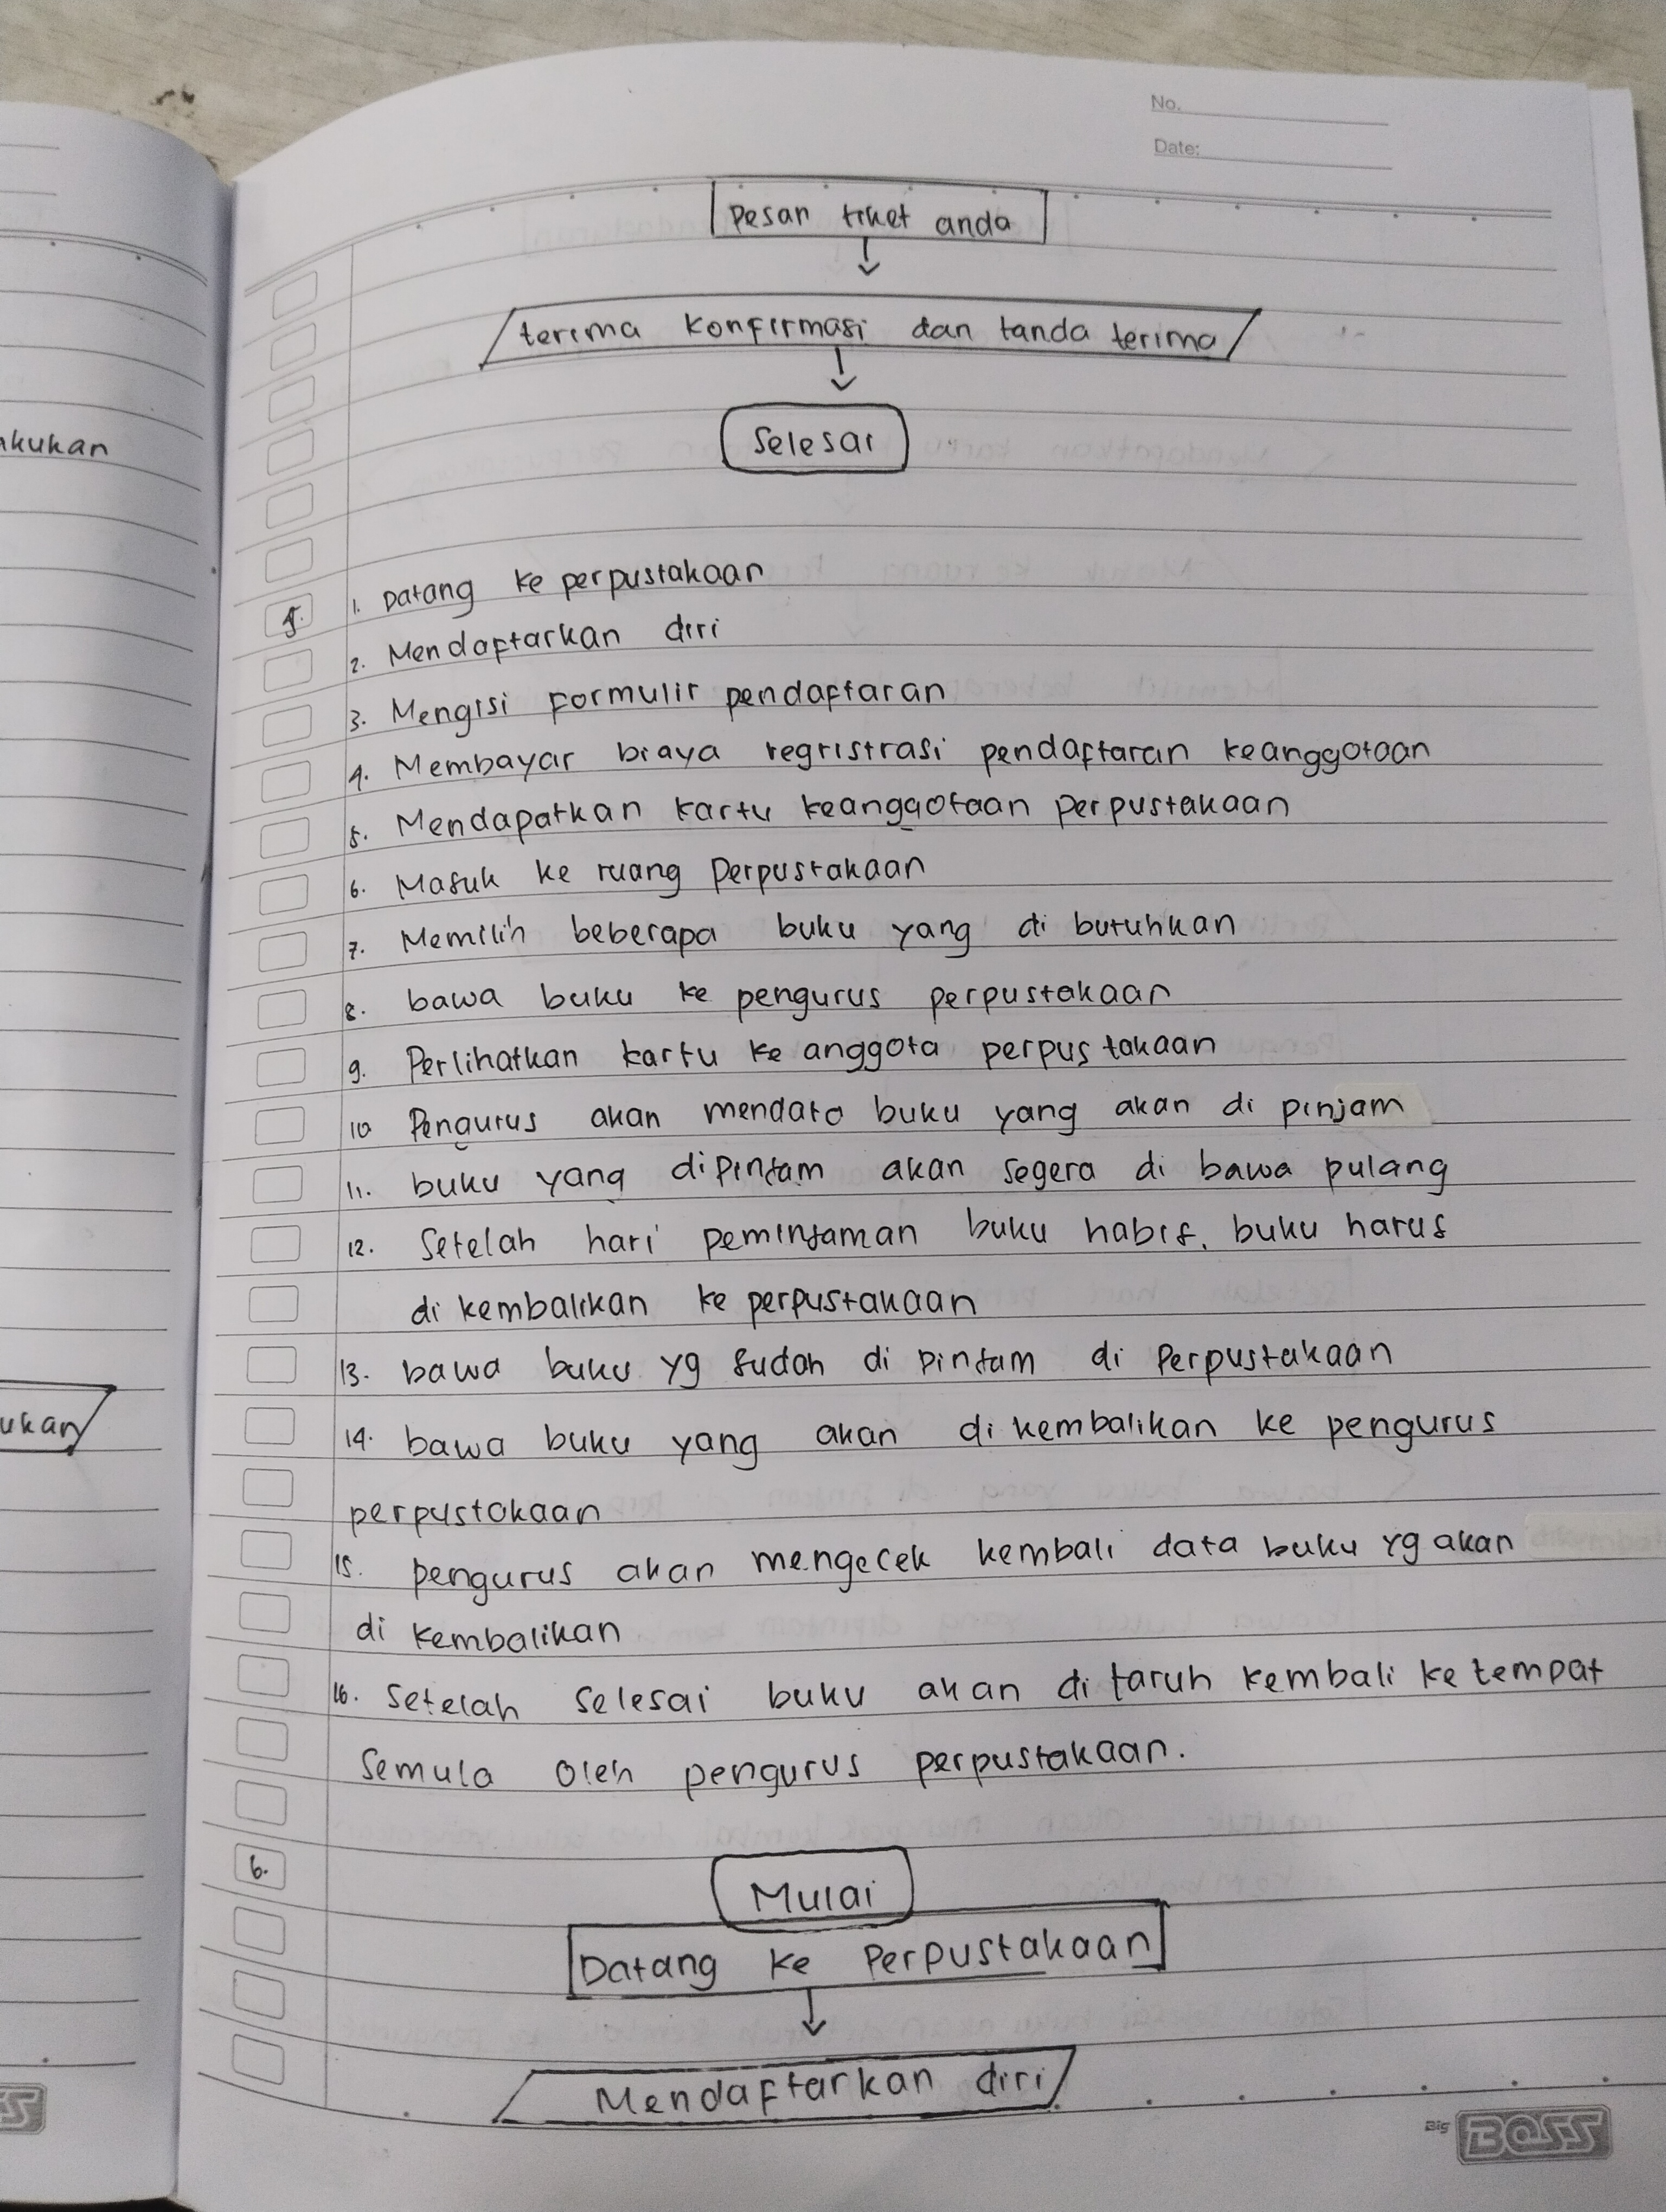 No.
Date:
Pesan tiket anda
terima konfirmasi dan tanda terima
Selesai
akukan
5. 1. Datang ke perpustakaan
2. Mendaftarkan diri
3. Mengisi formulir pendaftaran
4. Membayar biaya regristrasi pendaftaran keanggotaan
5. Mendapatkan kartu keanggotaan perpustakaan
6. Masuk ke ruang Perpustakaan
7. Memilih beberapa buku yang di butuhkan
8. bawa buku ke pengurus perpustakaan
9. Perlihatkan kartu ke anggota perpustakaan
10 Pengurus akan mendata buku yang akan di pinjam
11. buku yang dipinjam akan segera di bawa pulang
12. Setelah hari peminjaman buku habis, buku harus
di kembalikan ke perpustakaan
13. bawa buku yg sudah di pinjam di Perpustakaan
14. bawa buku yang akan di kembalikan ke pengurus
perpustakaan
ukan
15. pengurus akan mengecek kembali data buku yg akan
di kembalikan
16. Setelah selesai buku akan di taruh kembali ke tempat
semula oleh pengurus perpustakaan.
6. Mulai
Datang ke Perpustakaan
Mendaftarkan diri
Big BOSS